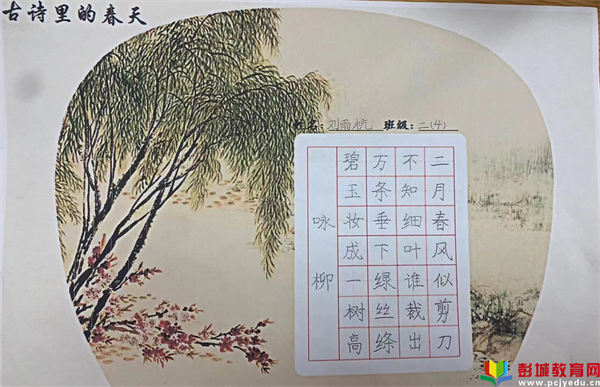 古诗里的春天
姓名:刘雨杭 班级:二(4)
咏柳
碧玉妆成一树高
万条垂下绿丝绦
不知细叶谁裁出
二月春风似剪刀
彭城教育网
www.pcjyedu.cn